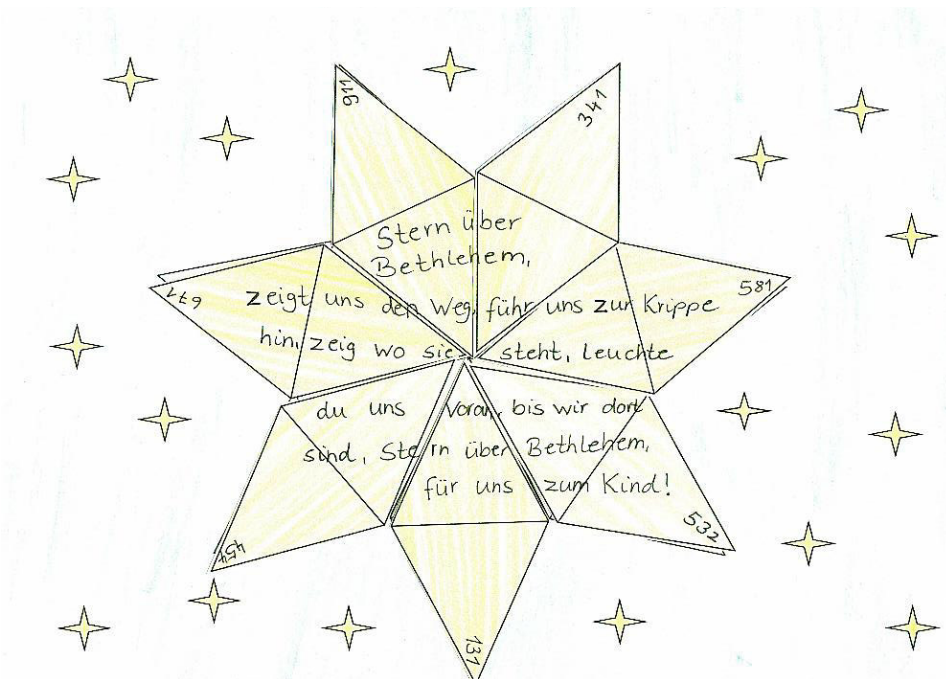 341
Stern über
Bethlehem,
581
zeigt uns den Weg, führ uns zur Krippe
hin, zeig wo sie steht, leuchte
du uns voran, bis wir dort
sind, Stern über Bethlehem,
für uns zum Kind!
532
454
131